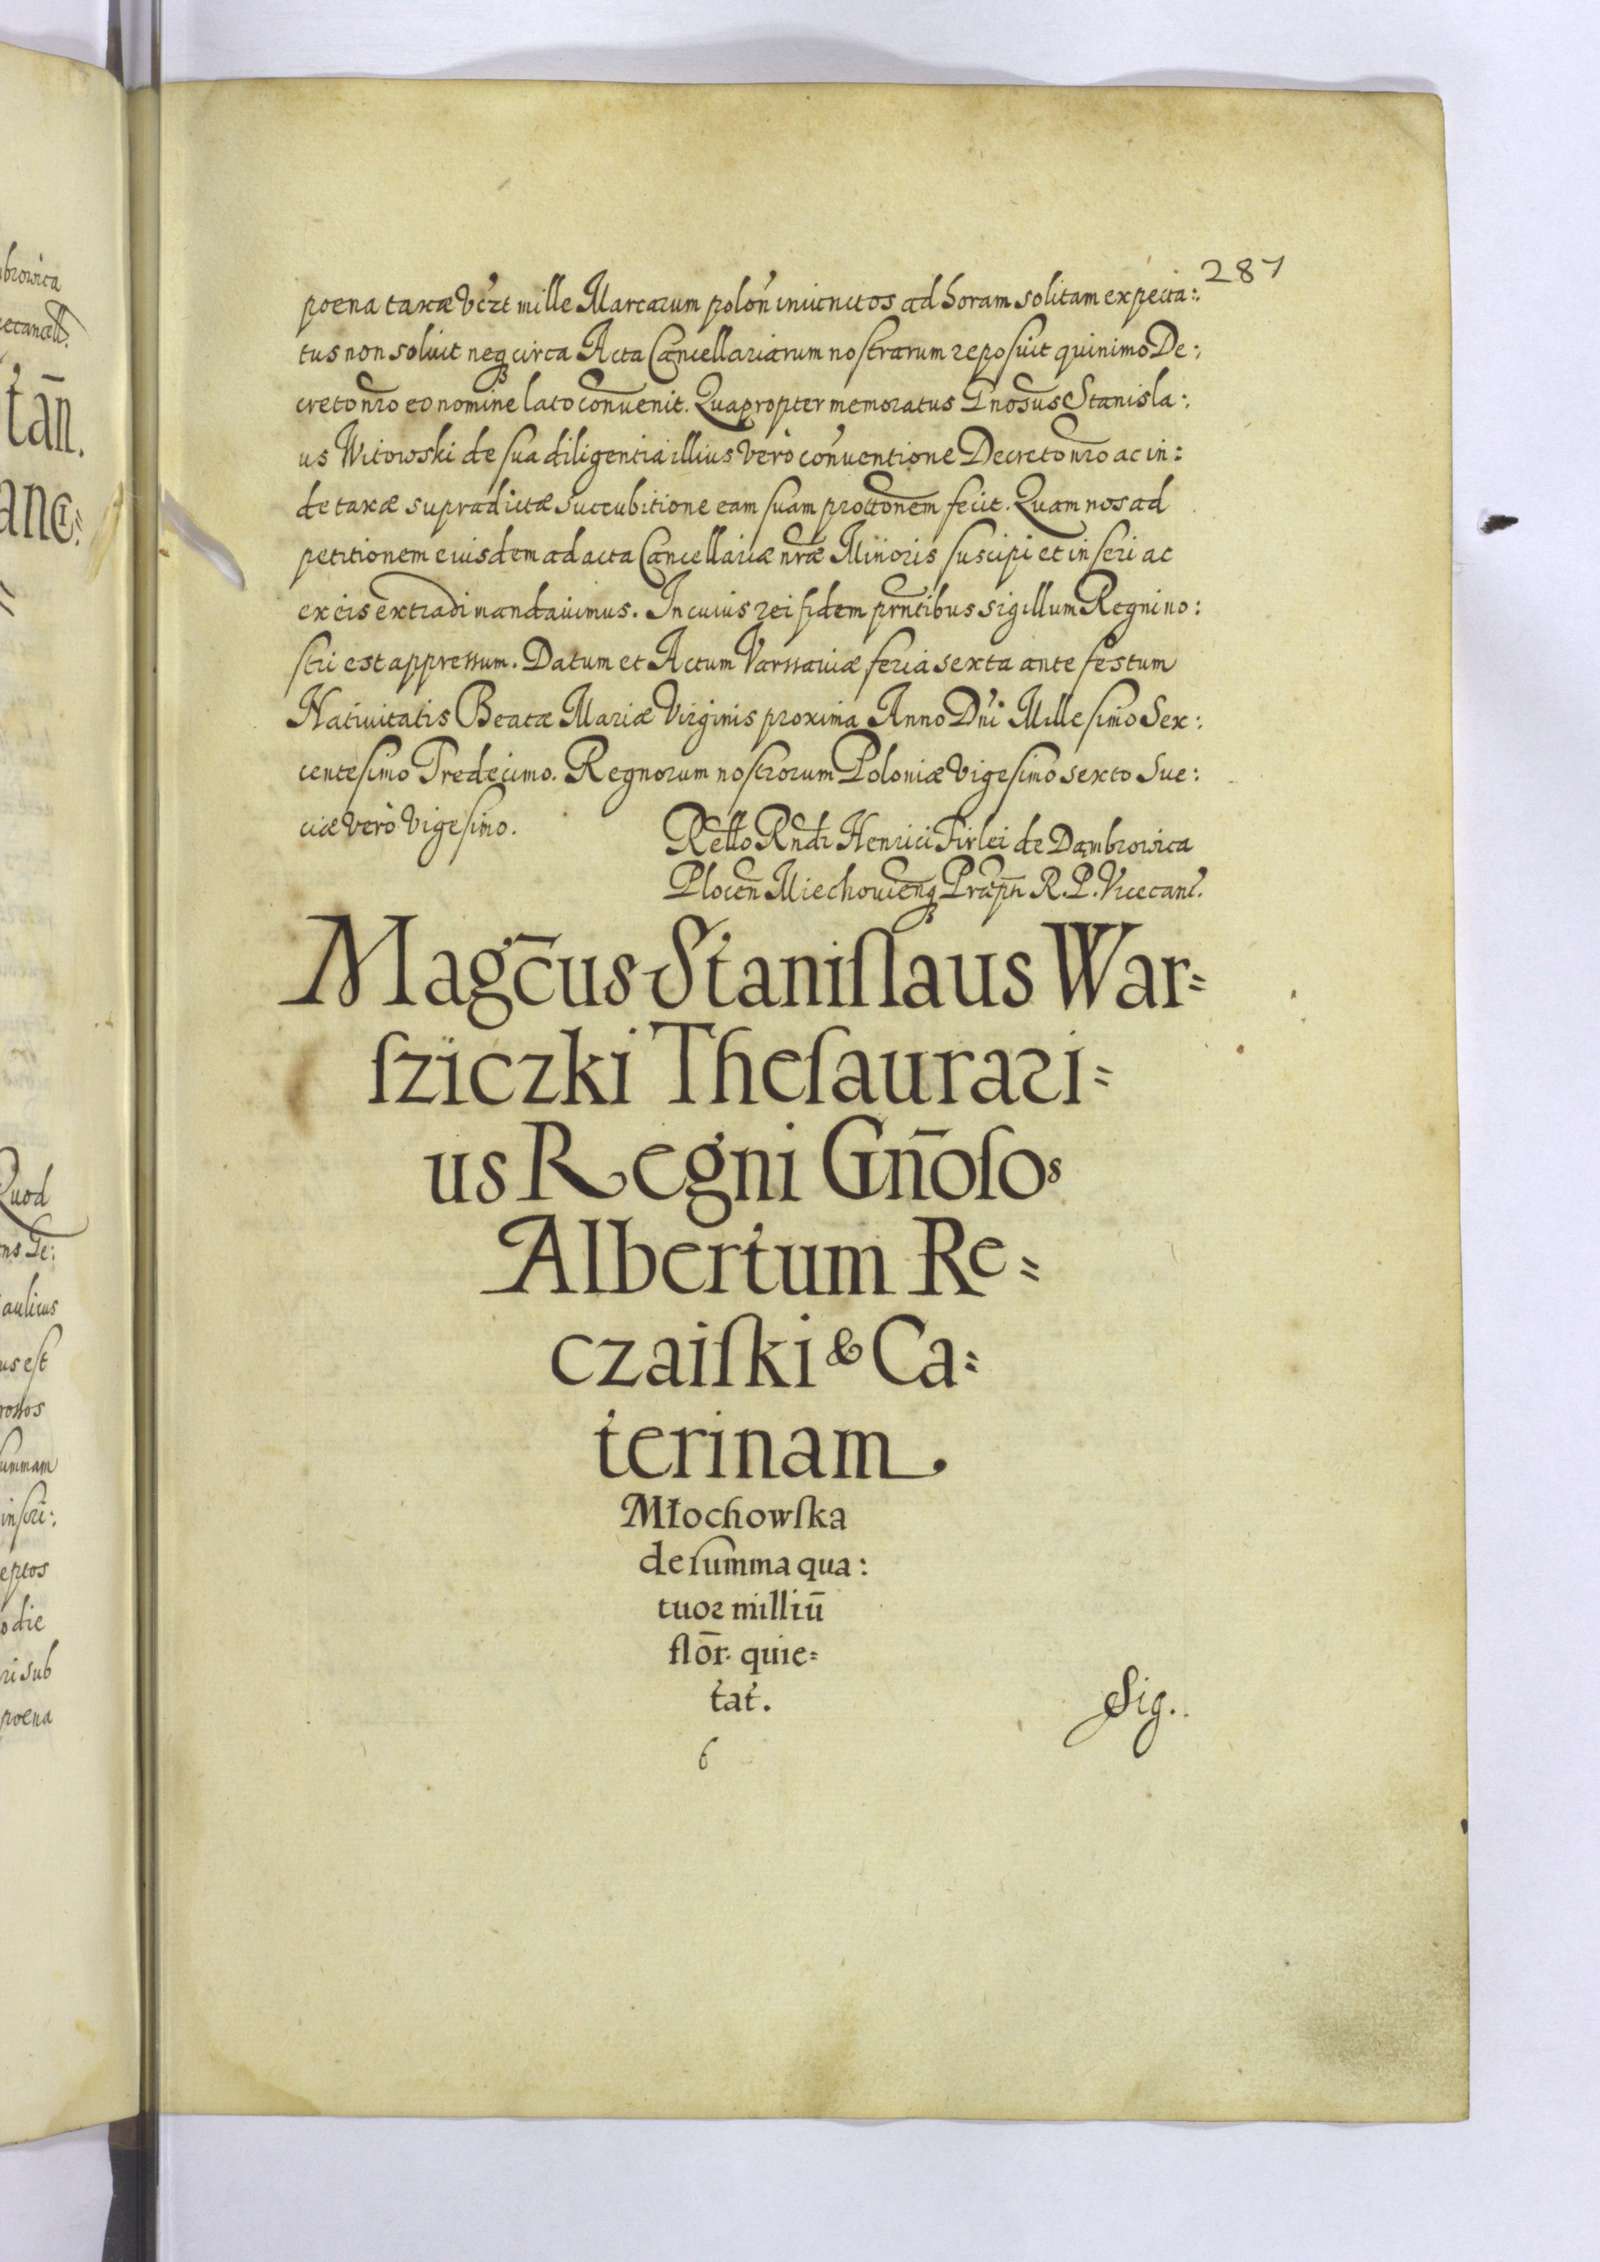 287
poena taxæ vczt mille Marcarum polon̄ in iunctos ad horam solitam expecta:
tus non soluit neq circa Acta Cancellariarum nostrarum reposuit quinimo De:
creto nro eo nomine lato conuenit. Quapropter memoratus Gnosus Stanisla:
us Witowski de sua diligentia illius verò conuentione Decreto nro ac in:
de taxæ supradictæ succubitione eam suam prottonem fecit. Quam nos ad
petitionem eiusdem ad acta Cancellariæ nræ Minoris suscipi et inseri ac
ex eis extradi mandauimus. In cuius rei fidem prntibus sigillum Regni no:
stri est appressum. Datum et Actum Varssauiæ feria sexta ante festum
Natiuitatis Beatæ Mariæ Virginis proxima Anno Dni Millesimo Sex:
centesimo Tredecimo. Regnorum nostrorum Poloniæ vigesimo sexto Sue:
ciæ verò vigesimo.
Retto Rndi Henrici Firlei de Dąmbrowica
Plocen̄ Miechouien̄q Præptī R. P. Vicecanc.
Magc̄us Staniſlaus War=
ſziczki Theſaurari=
us Regni Gn̄oſos
Albertum Re=
czaiſki & Ca=
terinam
Młochowſka
de ſumma qua:
tuor milliū
flōr. quie=
tat.
6
Sig.
browica
tān.
anc=
Quod
ns Ge:
aulicus
us est
summam
inscri:
eptos
o die
ri sub
poena